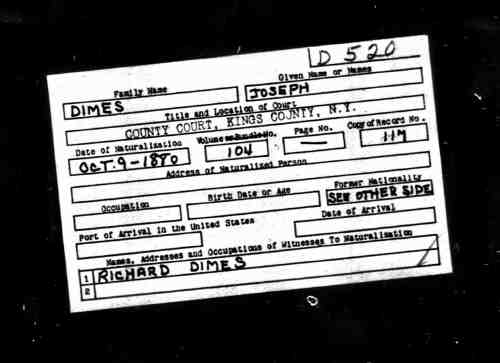 D 520
Family Name Given Name or Names
DIMES JOSEPH
Title and Location of Court
COUNTY COURT, KINGS COUNTY, N.Y.
Date of Naturalization Volume or Bundle No. Page No. Copy of Record No.
OCT. 9-1880 104 — 117
Address of Naturalized Person
Occupation Birth Date or Age Former Nationality
SEE OTHER SIDE
Port of Arrival in the United States Date of Arrival
Names, Addresses and Occupations of Witnesses To Naturalization
1 RICHARD DIMES
2